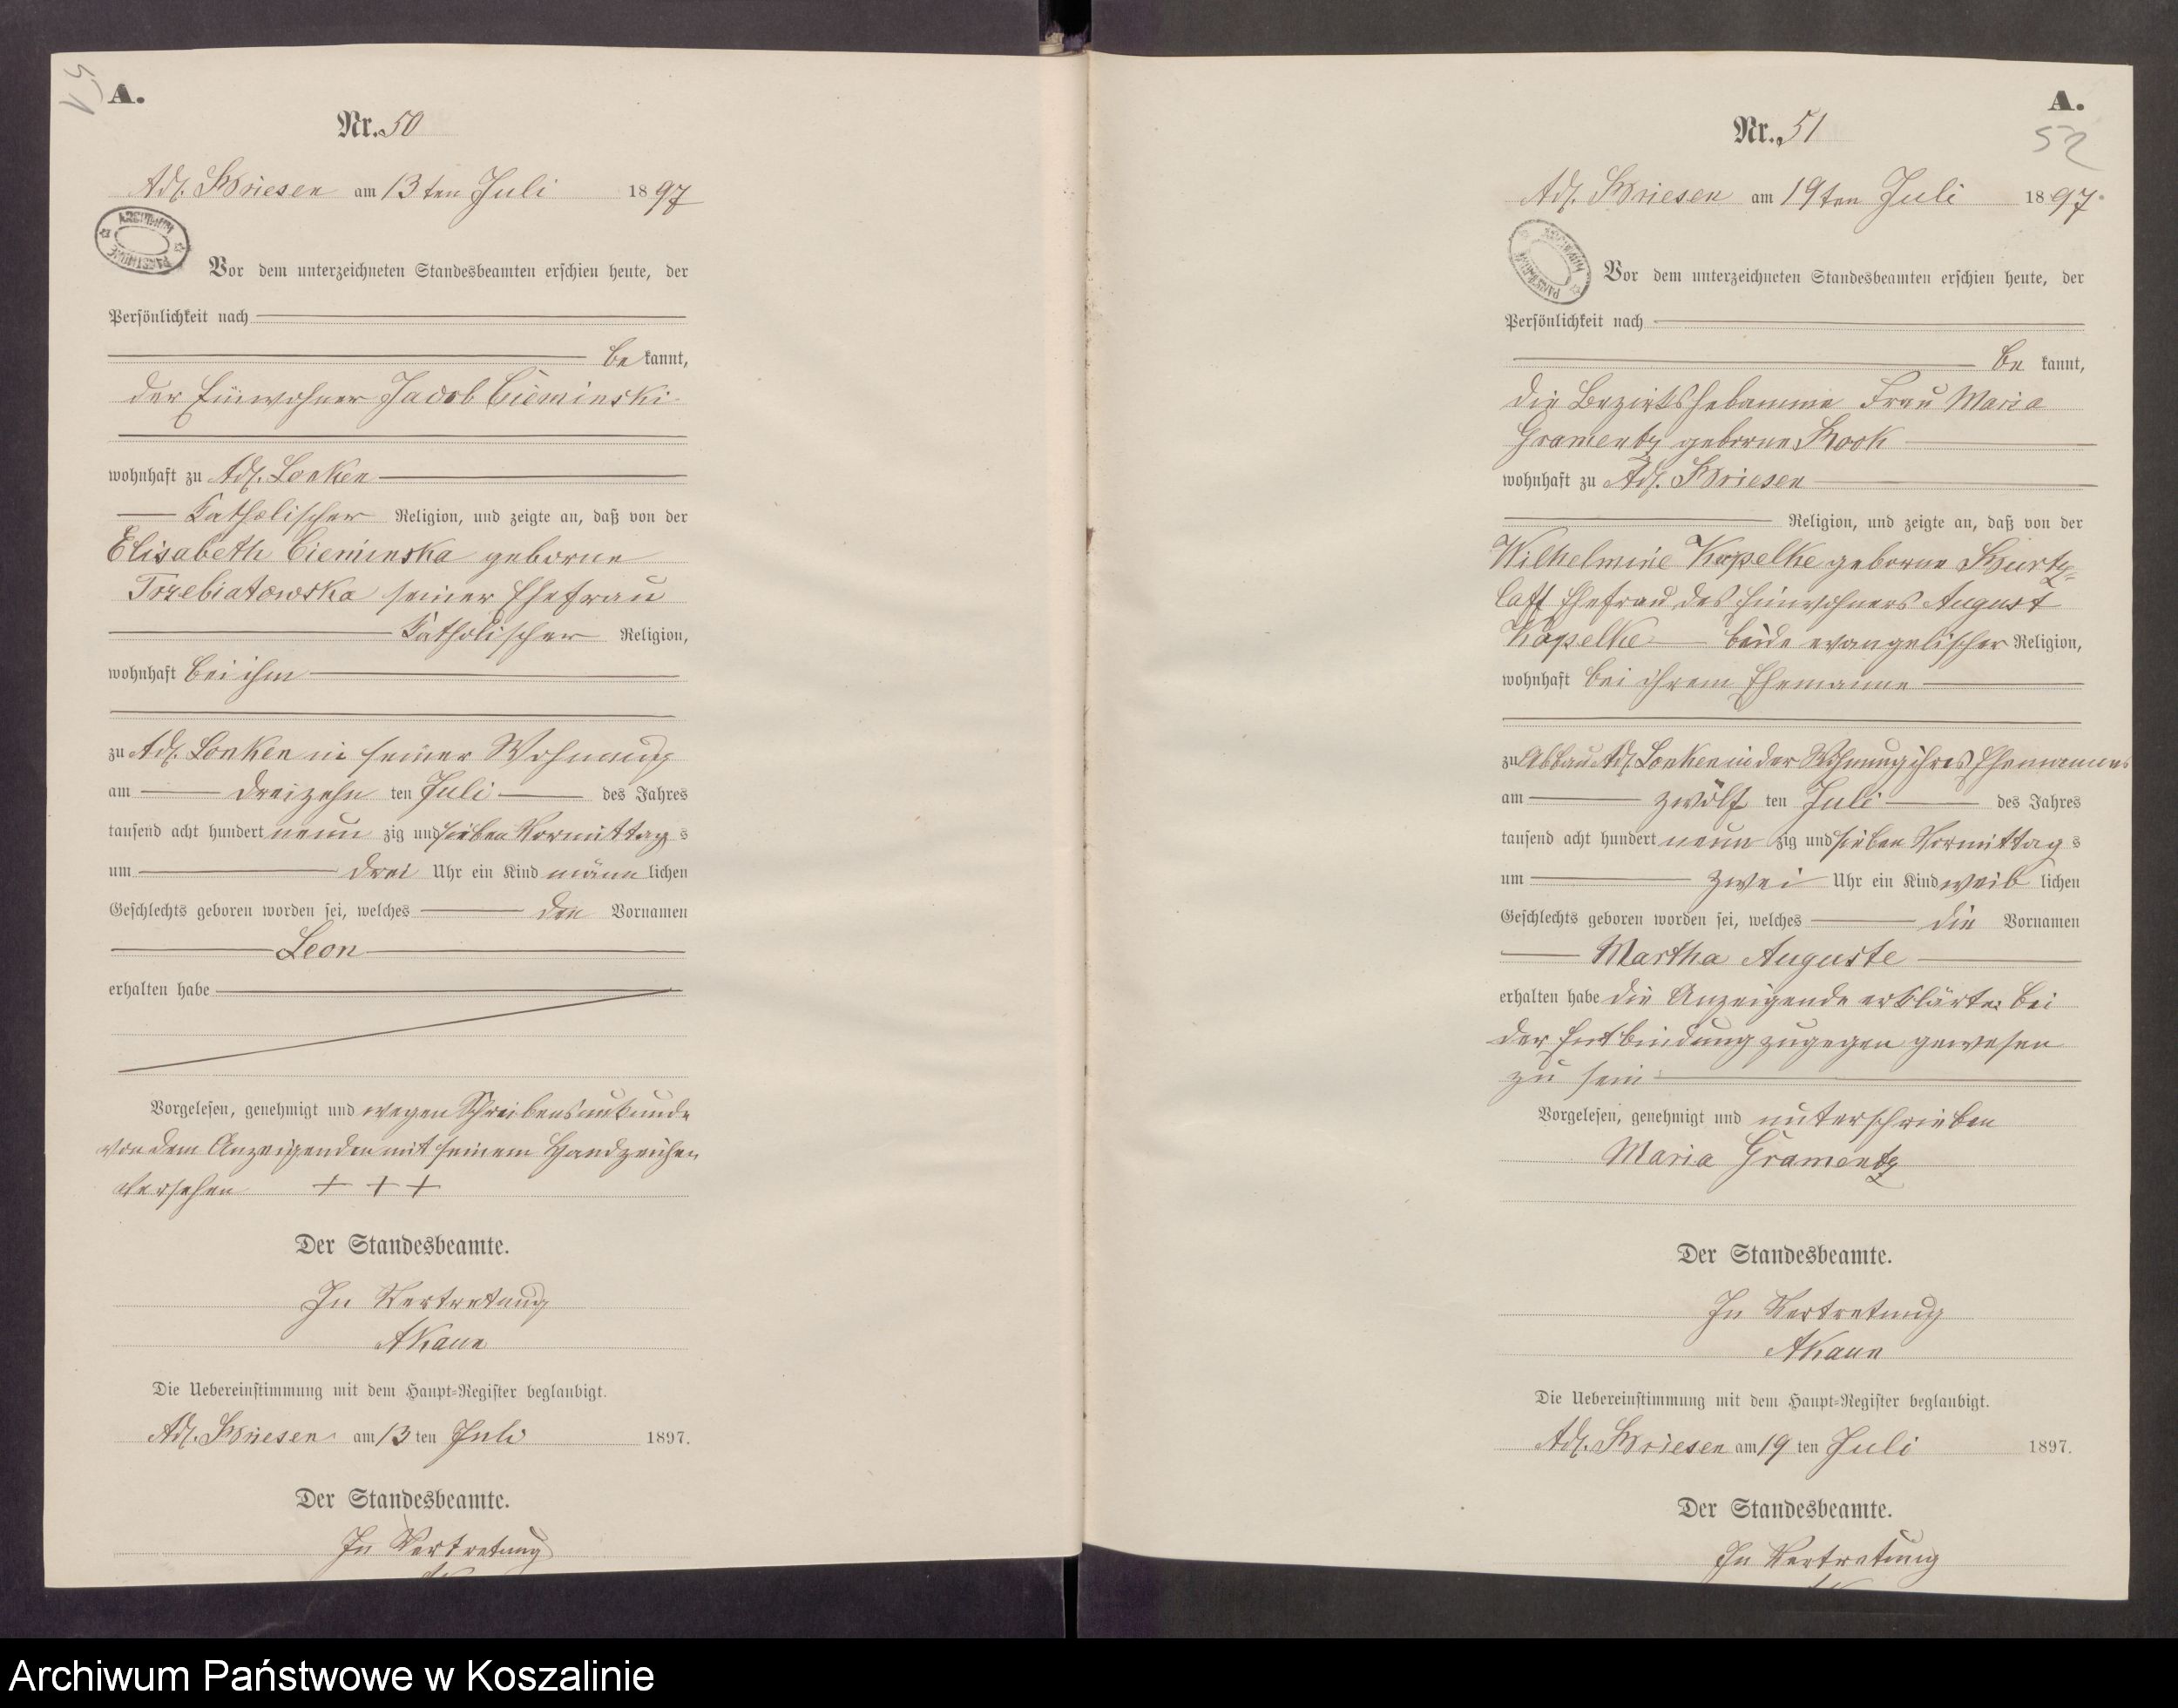 51
A.
Nr. 50
Adl. Briesen am 13ten Juli 1897
ARCHIWUM PAŃSTWOWE
Vor dem unterzeichneten Standesbeamten erschien heute, der
Persönlichkeit nach
be kannt,
der Einwohner Jacob Cieminski
wohnhaft zu Adl. Lonken
katholischer Religion, und zeigte an, daß von der
Elisabeth Cieminska geborne
Trzebiatowska seiner Ehefrau
katholischer Religion,
wohnhaft bei ihm
zu Adl. Lonken in seiner Wohnung
am dreizehn ten Juli des Jahres
tausend acht hundert neun zig und sieben Vormittag s
um drei Uhr ein Kind männ lichen
Geschlechts geboren worden sei, welches den Vornamen
Leon
erhalten habe
Vorgelesen, genehmigt und wegen Schreibensunkunde
von dem Anzeigenden mit seinem Handzeichen
versehen + + +
Der Standesbeamte.
In Vertretung
Die Uebereinstimmung mit dem Haupt-Register beglaubigt.
Adl. Briesen am 13 ten Juli 1897.
Der Standesbeamte.
In Vertretung
A.
52
Nr. 51
Adl. Briesen am 19ten Juli 1897.
ARCHIWUM PAŃSTWOWE
Vor dem unterzeichneten Standesbeamten erschien heute, der
Persönlichkeit nach
be kannt,
die Bezirkshebamme Frau Maria
Gramentz geborne Book
wohnhaft zu Adl. Briesen
Religion, und zeigte an, daß von der
Wilhelmine Kapelke geborne Burtz-
laff Ehefrau des Einwohners August
Kapelke beide evangelischer Religion,
wohnhaft bei ihrem Ehemanne
zu Abbau Adl. Lonken in der Wohnung ihres Ehemannes
am zwölf ten Juli des Jahres
tausend acht hundert neun zig und sieben Vormittag s
um zwei Uhr ein Kind weib lichen
Geschlechts geboren worden sei, welches die Vornamen
Martha Auguste
erhalten habe die Anzeigende erklärte: bei
der Entbindung zugegen gewesen
zu sein
Vorgelesen, genehmigt und unterschrieben
Maria Gramentz
Der Standesbeamte.
In Vertretung
Die Uebereinstimmung mit dem Haupt-Register beglaubigt.
Adl. Briesen am 19 ten Juli 1897.
Der Standesbeamte.
In Vertretung
Archiwum Państwowe w Koszalinie